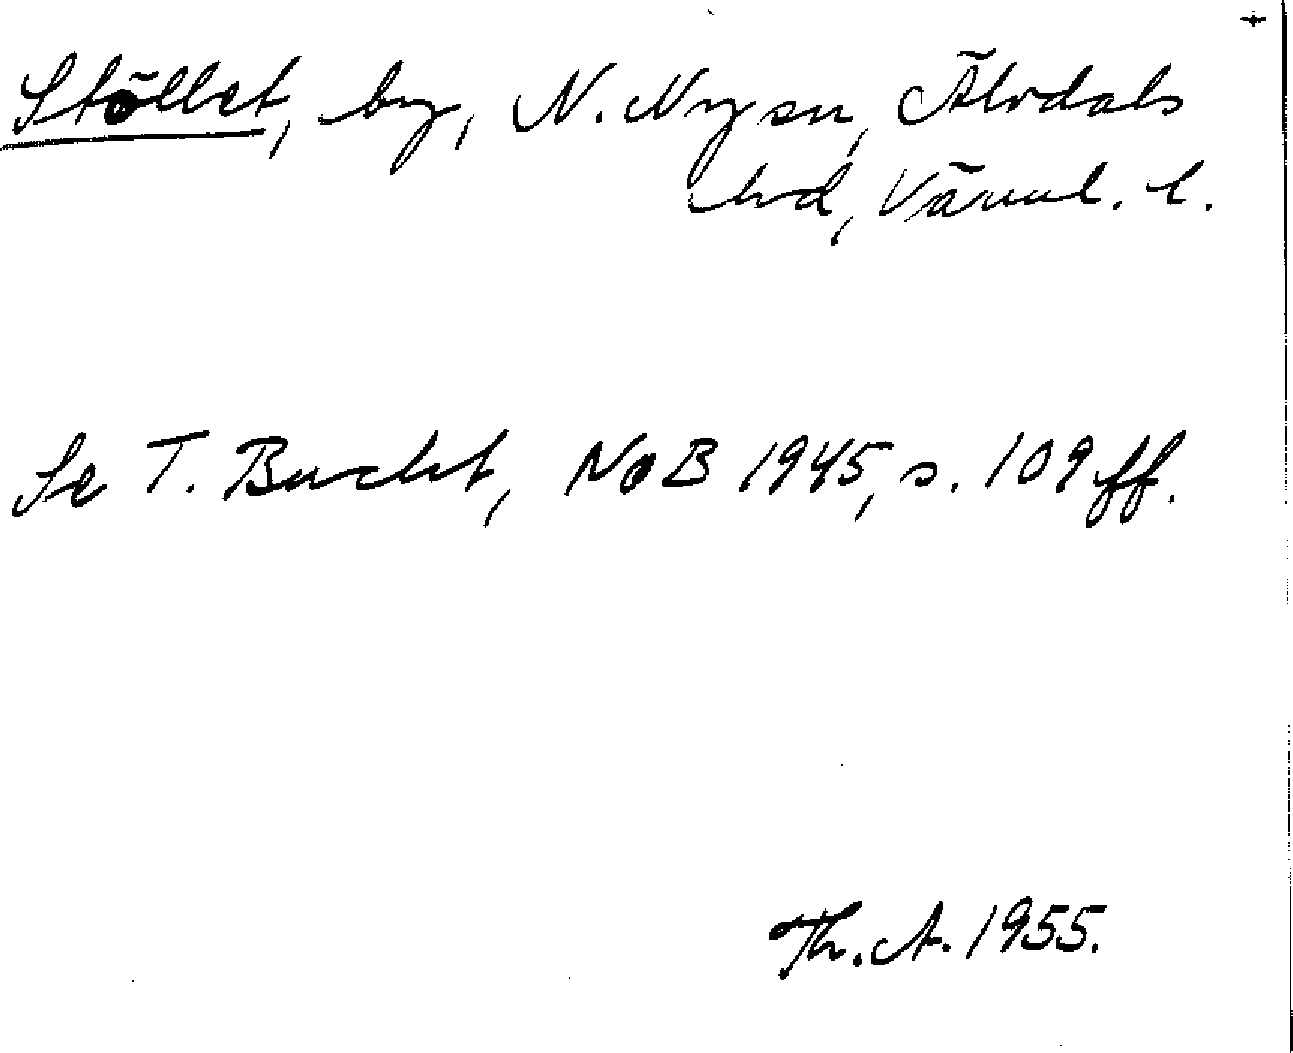 Stöllet, by, N. Ny sn, Älvdals
hd, Värml. l.
Se T. Bucht, NoB 1945, s. 109 ff.
Th. A. 1955.